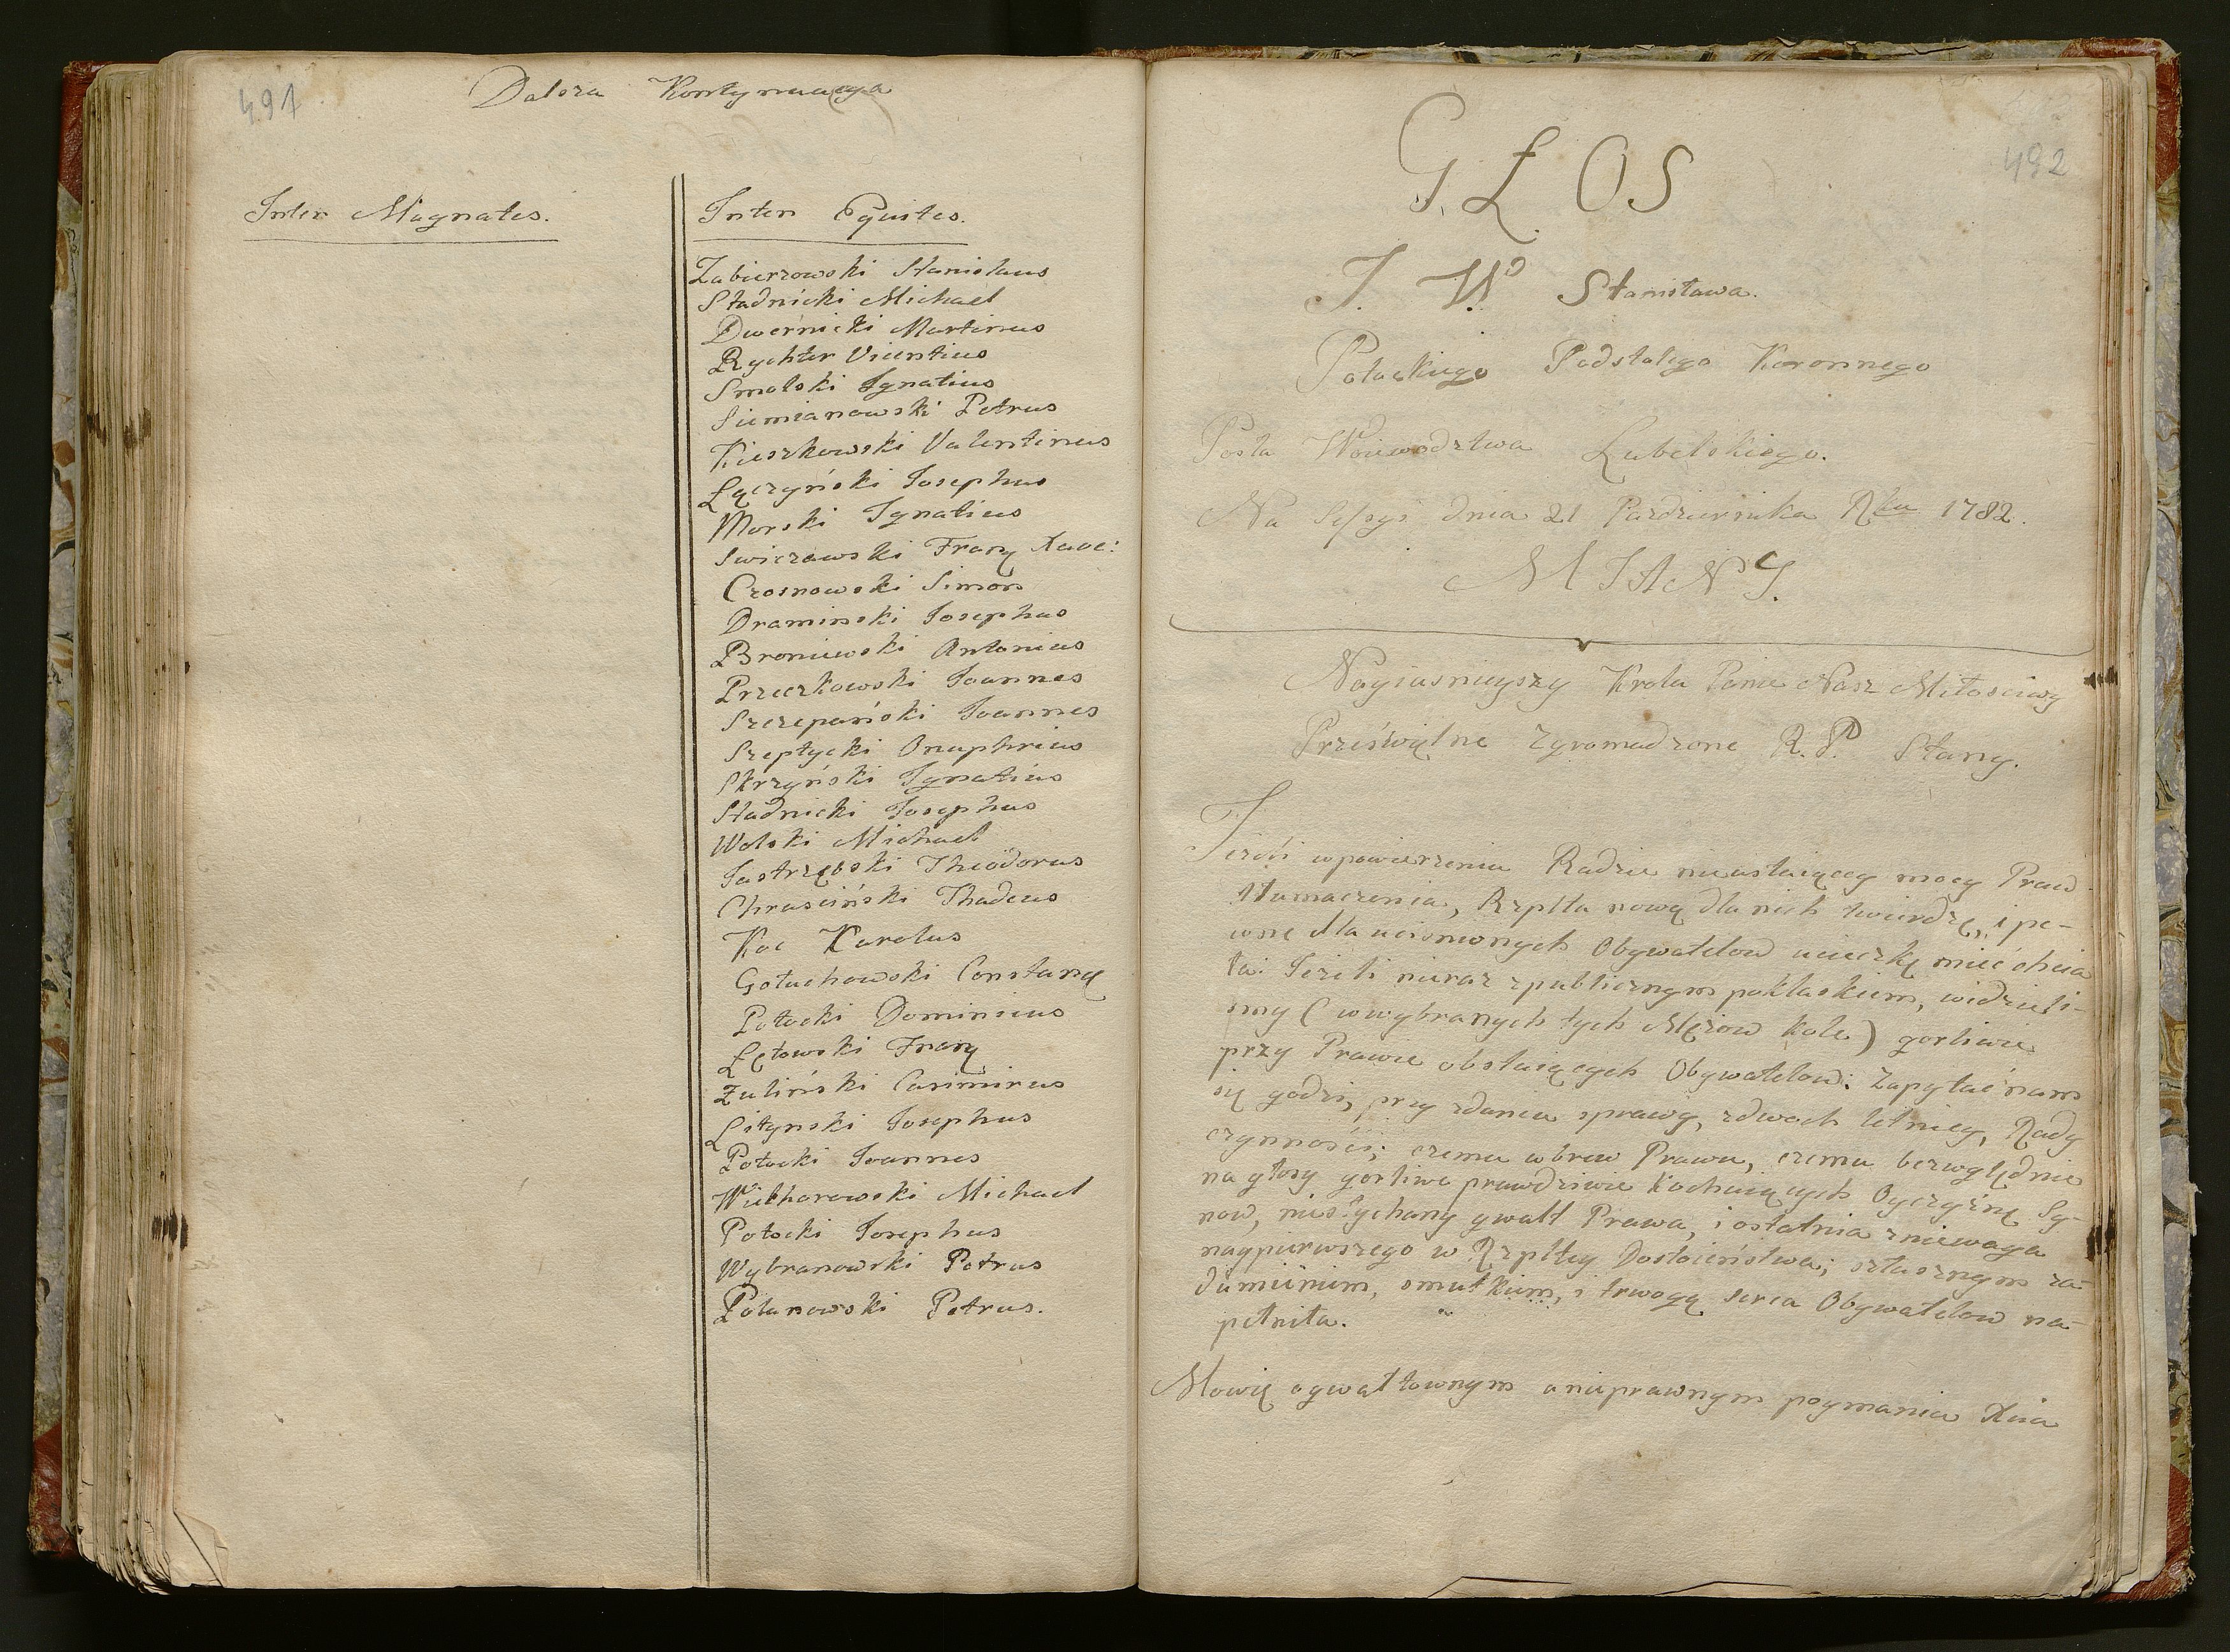 491
Dalsza Kontynuacya
Inter Magnates.
Inter Equites.
Zabierzowski Stanislaus
Stadnicki Michael
Dwernicki Martinus
Rychter Vicentius
Smolski Ignatius
Siemianowski Petrus
Kieszkowski Valentinus
Łączyński Josephus
Morski Ignatius
Swierzawski Franz Xave:
Crosnowski Simon
Draminski Josephus
Broniewski Antonius
Przeczkowski Joannes
Szczepański Joannes
Szeptycki Onuphrius
Skrzyński Ignatius
Stadnicki Josephus
Wolski Michael
Jastrzębski Theodorus
Chrusciński Thadeus
Koc Karolus
Gołuchowski Constanc
Potocki Dominicus
Łętowski Franc
Żuliński Casimirus
Lityński Josephus
Potocki Joannes
Wielhorowski Michael
Potocki Josephus
Wybranowski Petrus
Polanowski Petrus.
492
GŁOS
J. W° Stanisława.
Potockiego Podstolego Koronnego
Posła Woiewodztwa Lubelskiego.
Na Sessyi dnia 21 Pazdziernika Rku 1782.
MIANY.
Nayiasnieyszy Krolu Panie Nasz Miłosciwy
Prześwietne Zgromadzone R. P. Stany.
Jeżeli w powierzeniu Radzie nieustaiącey mocy Praw
tłumaczenia, Rzplta nową dla nich twierdzę, i pe-
wne dla ucisnionych Obywatelow ucieczkę mieć chcia
ła: Jeżeli nieraz z publicznym poklaskiem, widzieli-
smy (w wybranych tych Mężow kole) gorliwie
przy Prawie obstaiących Obywatelow: Zapytać nam
się godzi, przy zdaniu sprawy, z dwoch letniey, Rady
czynności; czemu wbrew Prawu, czemu bezwzględnie
na głosy gorliwe prawdziwie kochaiących Oyczyznę Sy-
now, niesłychany gwałt Prawa, i ostatnia zniewaga
naypierwszego w Rzpltey Dostoieństwa; sztusznym za-
dumieniem, smutkiem, i trwogą serca Obywatelow na-
pełniła.
Mowię o gwałtownym a nieprawnym poymaniu Xcia